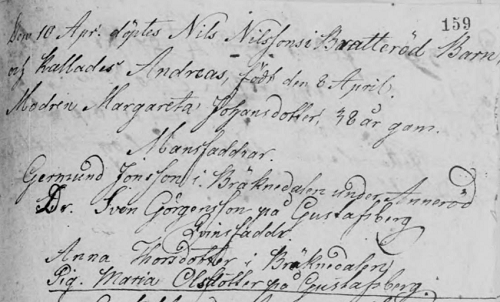 159
Den 10 Apr. döptes Nils Nilssons i Bratteröd Barn,
och kallades Andreas, född den 8 April.
Modren Margareta Johansdotter, 38 år gam.
Mansfaddrar.
Germund Jonsson i Bräknedalen under Anneröd
Dr. Sven Görgensson på Gustafsberg
Qvinsfaddr.
Anna Thorsdotter i Bräknedalen
Pig. Maria Olsdotter på Gustafsberg.